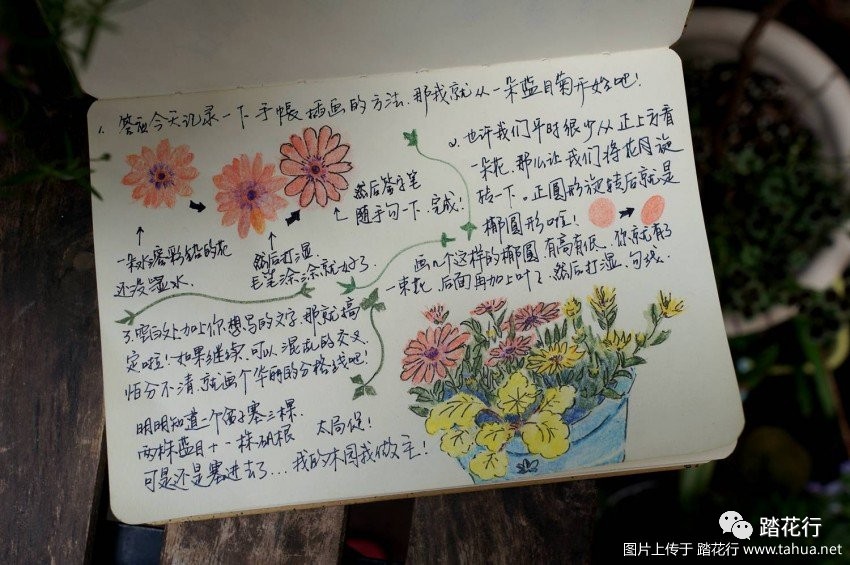 1. 答应今天记录一下手帐插画的方法.那我就从一朵蓝目菊开始吧!
一朵水溶彩铅的花
还没湿水.
然后打湿.
毛笔涂涂就好了
然后签字笔
随手勾一下.完成!
2. 也许我们平时很少从正上方看
一朵花.那么让我们将花朵旋
转一下。正圆形旋转后就是
椭圆形啦!
画几个这样的椭圆.有高有低.你就有了
一束花.后面再加上叶子.然后打湿.勾线.
3. 空白处加上你想写的文字.那就搞
定啦!如果继续.可以混乱的交叉
怕分不清.就画个华丽的分格线吧!
明明知道一个盆子塞三棵.
两株蓝目+一株 太局促!
可是还是塞进去了...我的 园我做主!
踏花行
图片上传于 踏花行 www.tahua.net